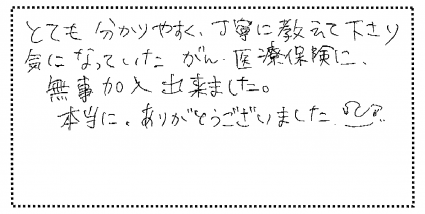 とても分かりやすく、丁寧に教えて下さり
気になっていた がん、医療保険に、
無事加入出来ました。
本当に、ありがとうございました